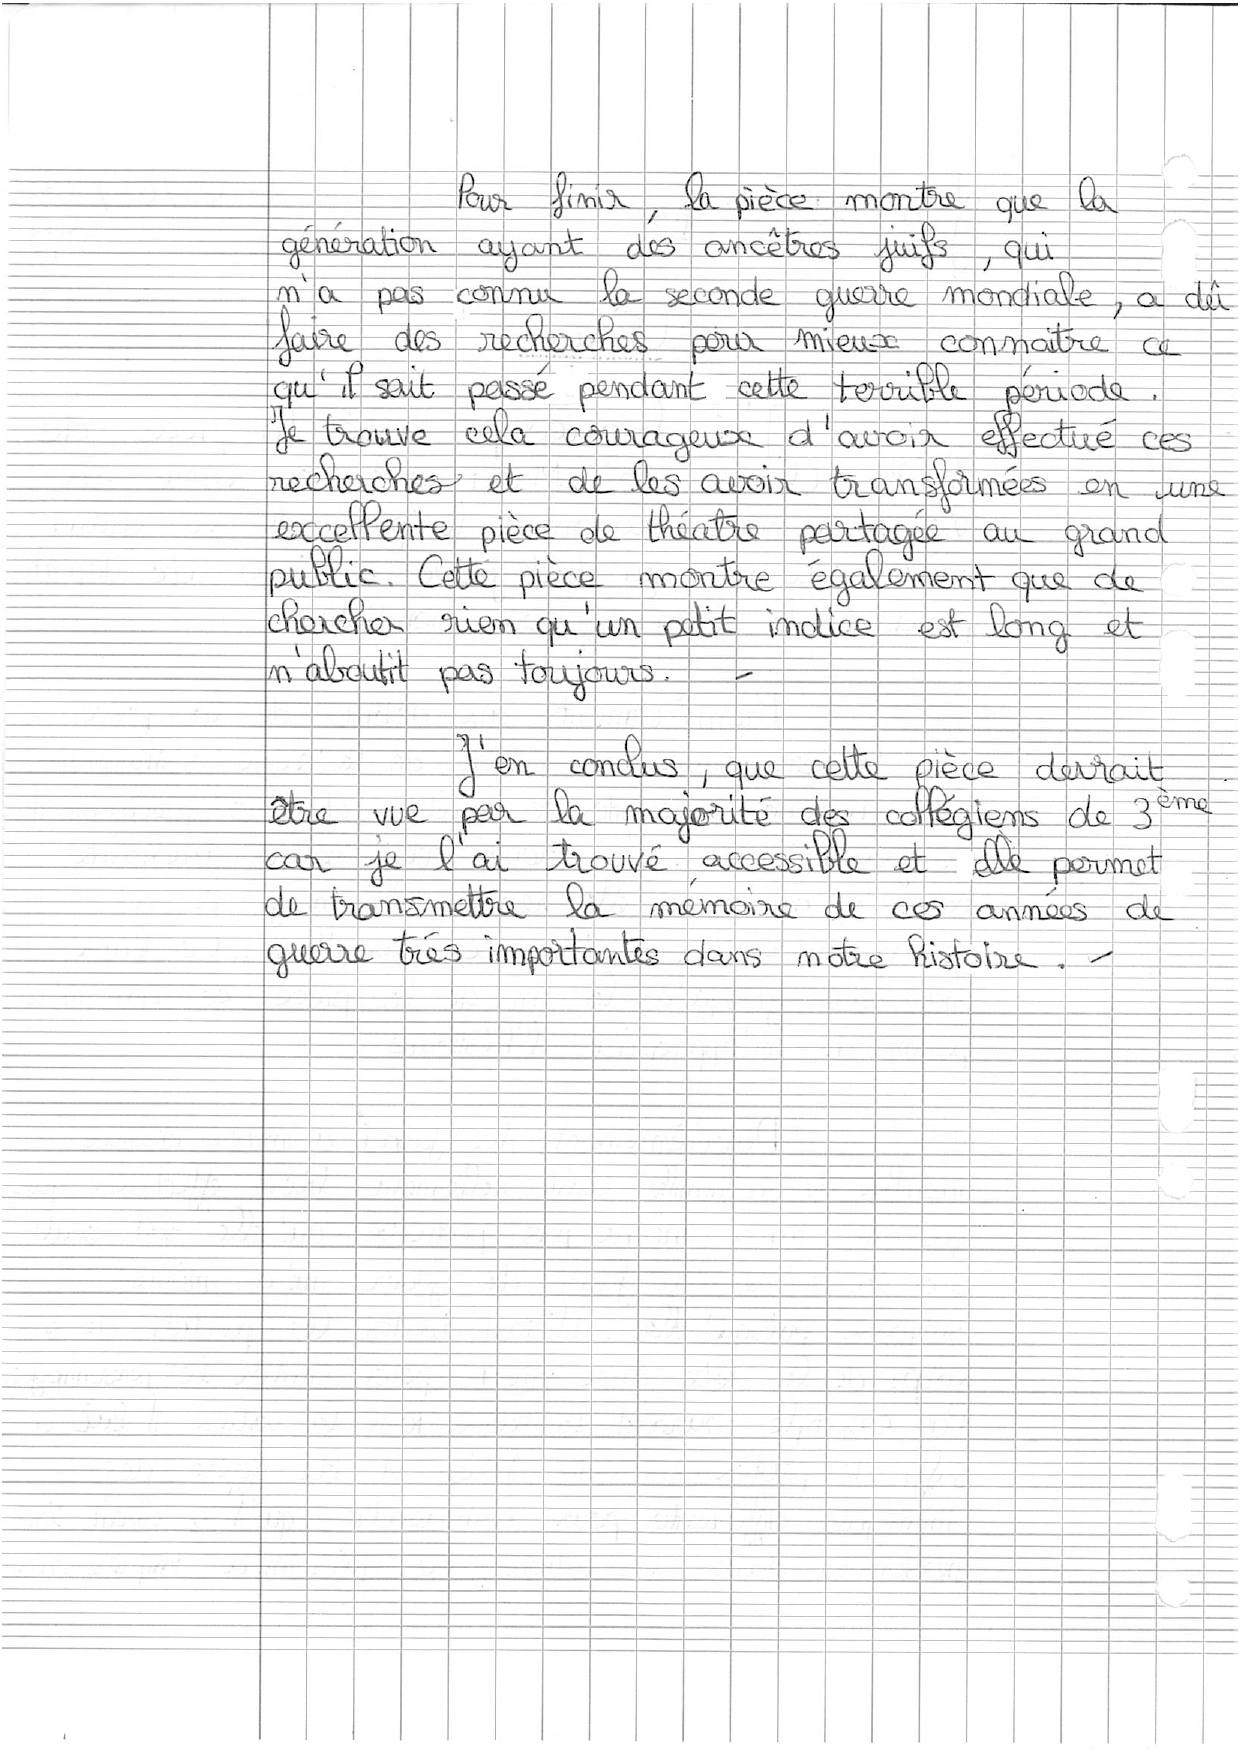 Pour finir, la pièce montre que la
génération ayant des ancêtres juifs, qui
n'a pas connu la seconde guerre mondiale, a dû
faire des recherches pour mieux connaitre ce
qu'il sait passé pendant cette terrible période.
Je trouve cela courageux d'avoir effectué ces
recherches et de les avoir transformées en une
excellente pièce de théatre partagée au grand
public. Cette pièce montre également que de
chercher rien qu'un petit indice est long et
n'aboutit pas toujours. -
J'en conclus, que cette pièce devrait
être vue par la majorité des collégiens de 3ème
car je l'ai trouvé accessible et elle permet
de transmettre la mémoire de ces années de
guerre très importantes dans notre histoire. -